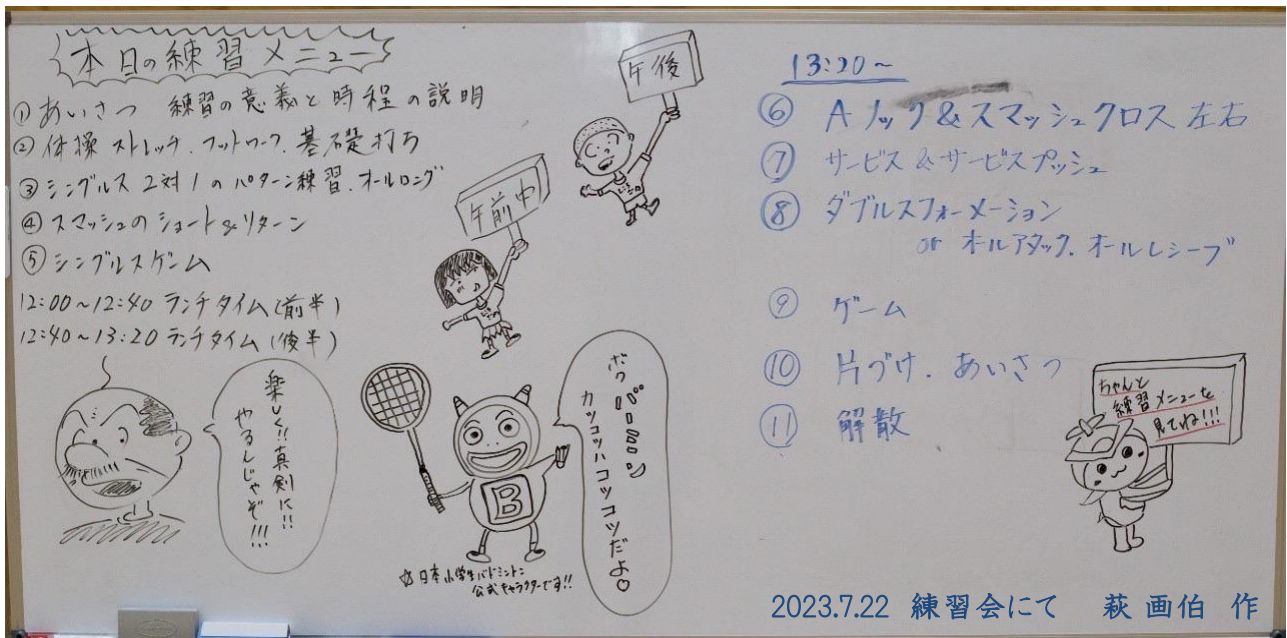 本日の練習メニュー
① あいさつ 練習の意義と時程の説明
② 体操 ストレッチ.フットワーク.基礎打ち
③ シングルス 2対1のパターン練習.オールロング
④ スマッシュのショート&リターン
⑤ シングルスゲーム
12:00~12:40 ランチタイム(前半)
12:40~13:20 ランチタイム(後半)
午前中
午後
楽しく!!真剣に!!
やるんじゃぞ!!!
ボク バーミン
カツコツハコツコツだよ♡
B
☆日本小学生バドミントン
公式キャラクターです!!
13:20~
⑥ Aノック&スマッシュクロス 左右
⑦ サービス&サービスプッシュ
⑧ ダブルスフォーメーション
or オールアタック.オールレシーブ
⑨ ゲーム
⑩ 片づけ.あいさつ
⑪ 解散
ちゃんと
練習メニューを
見てね!!!
2023.7.22 練習会にて 萩 画伯 作